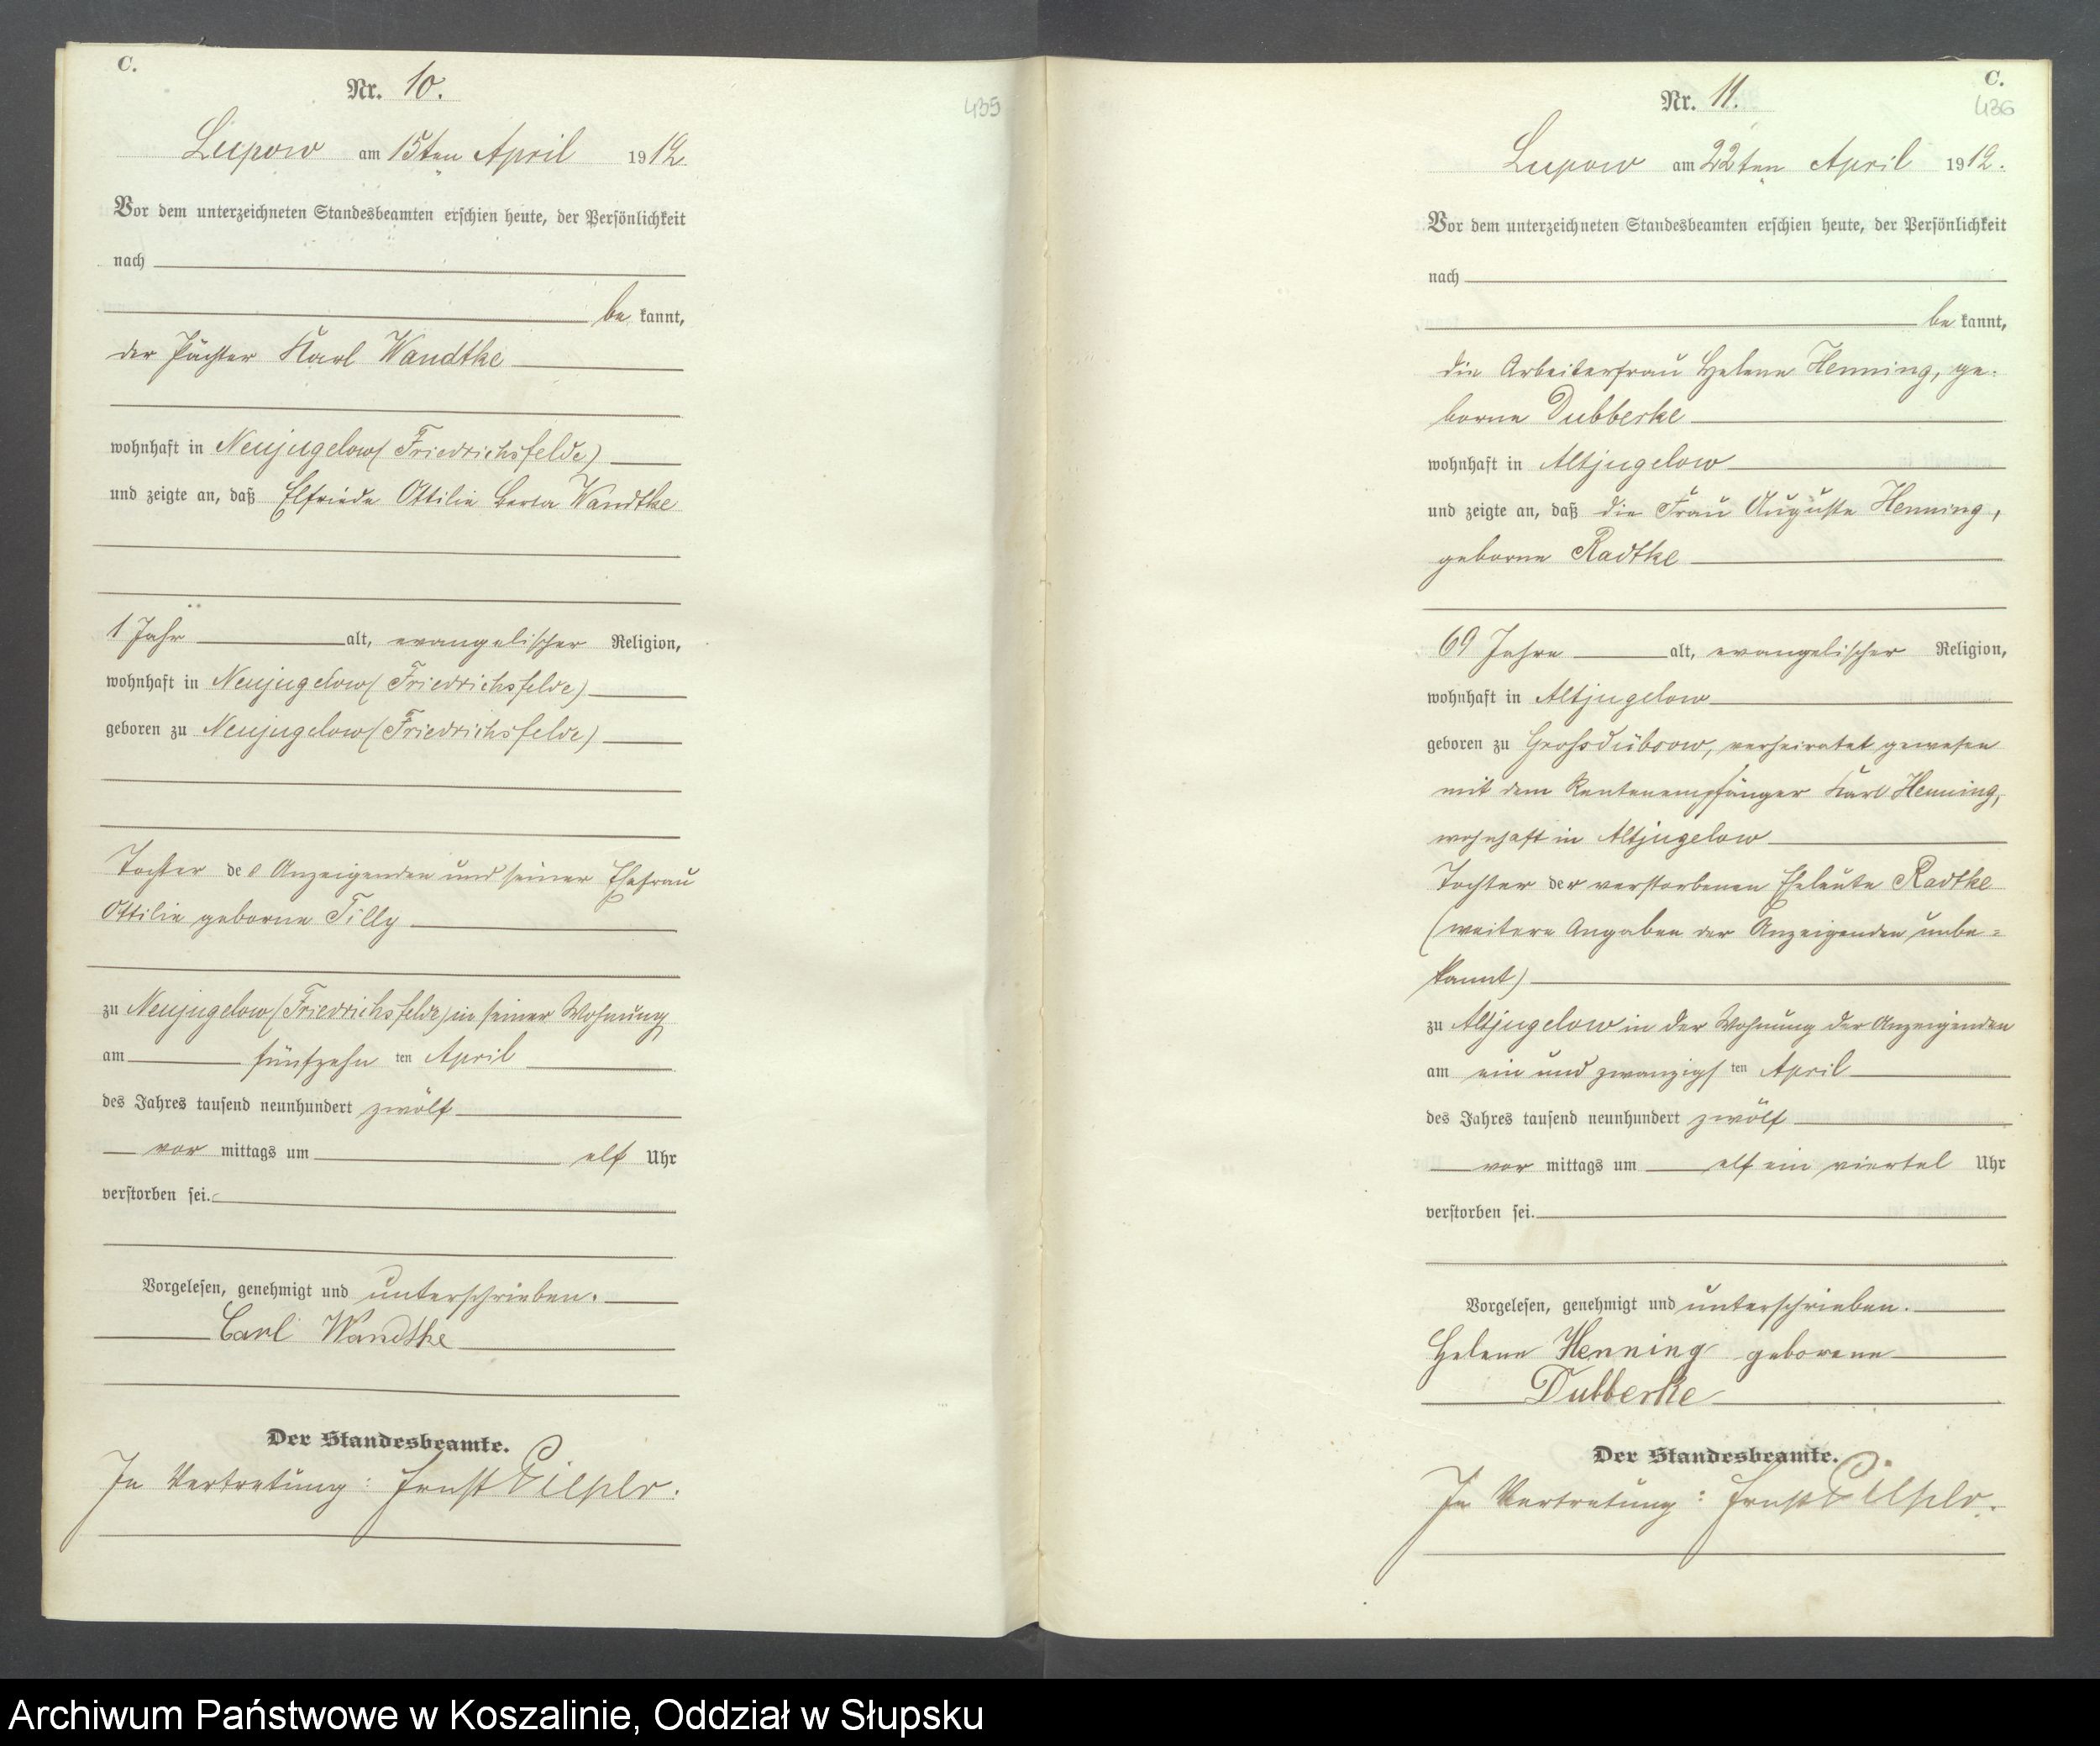 C.
Nr. 10.
435
Lupow am 15ten April 1912
Vor dem unterzeichneten Standesbeamten erschien heute, der Persönlichkeit
nach
be kannt,
der Pächter Karl Wandtke
wohnhaft in Neujugelow (Friedrichsfelde)
und zeigte an, daß Elfriede Ottilie Berta Wandtke
1 Jahr alt, evangelischer Religion,
wohnhaft in Neujugelow (Friedrichsfelde)
geboren zu Neujugelow (Friedrichsfelde)
Tochter des Anzeigenden und seiner Ehefrau
Ottilie geborne Tilly
zu Neujugelow (Friedrichsfelde) in seiner Wohnung
am fünfzehn ten April
des Jahres tausend neunhundert zwölf
vor mittags um elf Uhr
verstorben sei.
Vorgelesen, genehmigt und unterschrieben.
Carl Wandtke
Der Standesbeamte.
In Vertretung: Ernst
C.
Nr. 11.
436
Lupow am 22ten April 1912.
Vor dem unterzeichneten Standesbeamten erschien heute, der Persönlichkeit
nach
be kannt,
die Arbeiterfrau Helene Henning, ge-
borne Dubberke
wohnhaft in Altjugelow
und zeigte an, daß die Frau Auguste Henning,
geborne Radtke
69 Jahre alt, evangelischer Religion,
wohnhaft in Altjugelow
geboren zu Großdübsow, verheiratet gewesen
mit dem Rentenempfänger Karl Henning,
wohnhaft in Altjugelow
Tochter der verstorbenen Eheleute Radtke
(weitere Angaben der Anzeigenden unbe=
kannt)
zu Altjugelow in der Wohnung der Anzeigenden
am ein und zwanzigs ten April
des Jahres tausend neunhundert zwölf
vor mittags um elf ein viertel Uhr
verstorben sei.
Vorgelesen, genehmigt und unterschrieben.
Helene Henning geborene
Dubberke
Der Standesbeamte.
In Vertretung: Ernst
Archiwum Państwowe w Koszalinie, Oddział w Słupsku